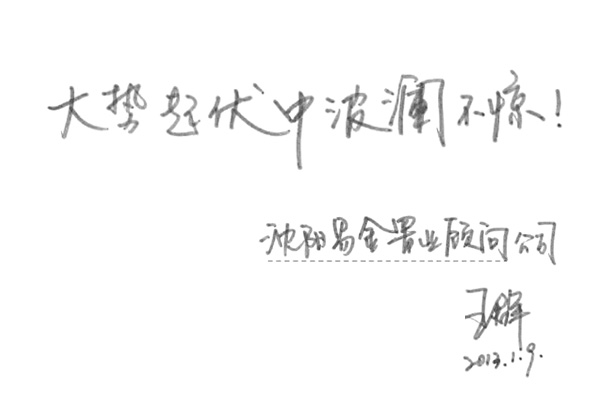 大势起伏中波澜不惊!
沈阳易金置业顾问公司
王辉
2013.1.9.